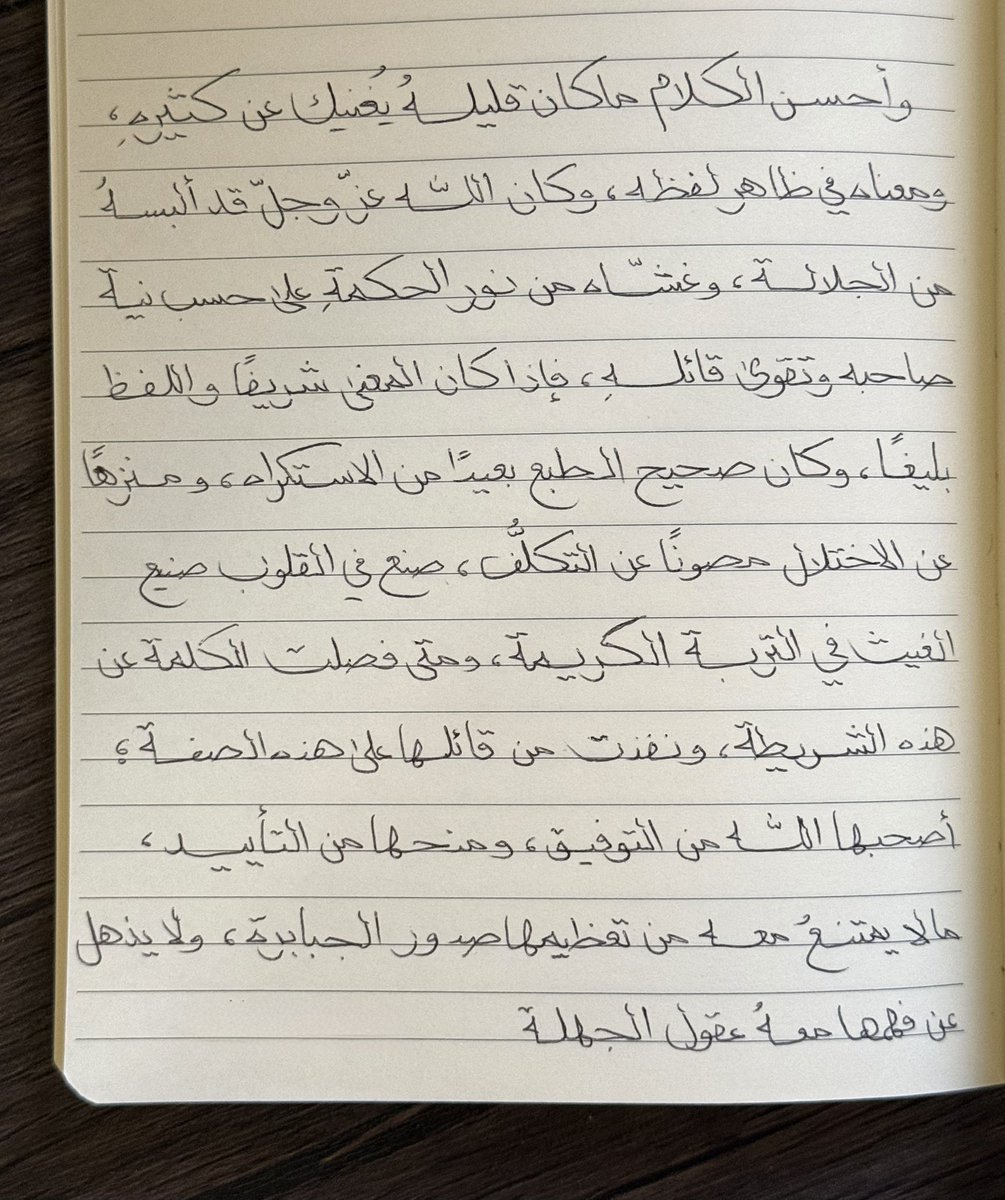 وأحسن الكلام ما كان قليلهُ يُغنيك عن كثيرهِ،
ومعناه في ظاهر لفظه، وكان اللّه عزّ وجلّ قد ألبسهُ
من الجلالة، وغشّاه من نور الحكمةِ على حسب نية
صاحبه وتقوى قائلهِ، فإذا كان المعنى شريفًا واللفظ
بليغًا، وكان صحيح الطبع بعيدًا من الاستكراه، ومنزهًا
عن الاختلال مصونًا عن التكلُّف، صنع في القلوب صنيع
الغيث في التربة الكريمة، ومتى فصلت الكلمة عن
هذه الشريطة، ونفذت من قائلها على هذه الصفة؛
أصحبها اللّه من التوفيق، ومنحها من التأييد،
مالا يمتنعُ معه من تعظيمها صدور الجبابرة، ولا يذهل
عن فهمها معهُ عقول الجهلة